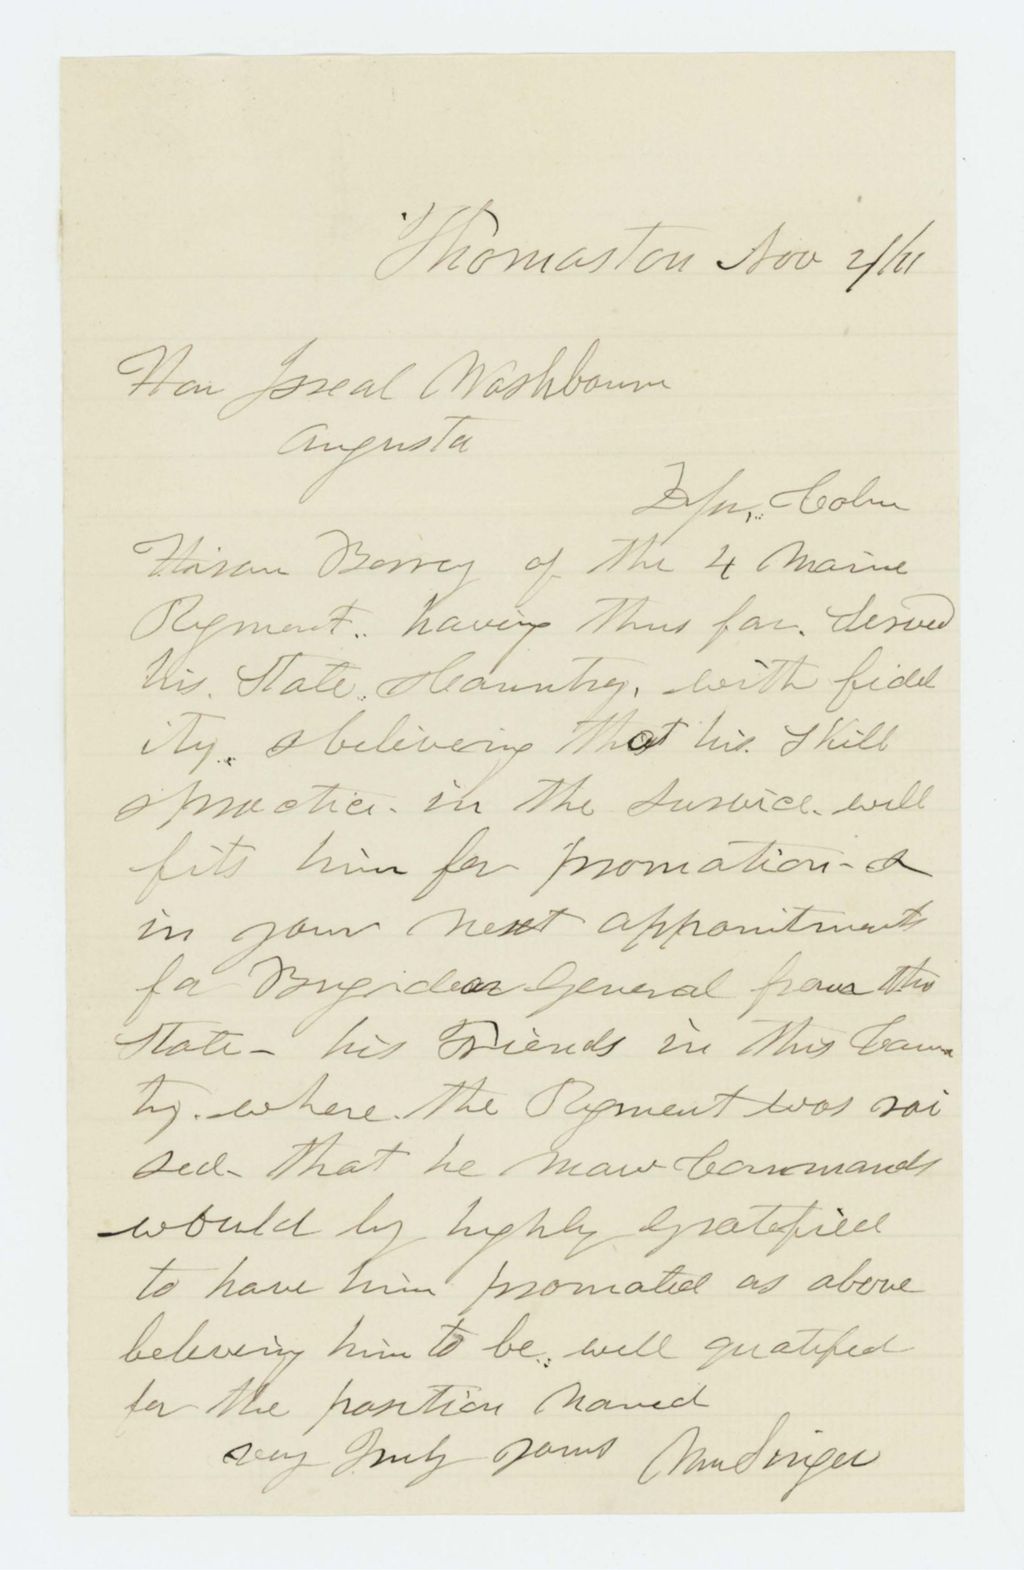 Thomaston Nov 2/61
Hon Isreal Washbourn
Augusta
Colnn
Hiram Berrey of the 4 Maine
Rigment.. having thus far. Served
his. State. & Counntry. with fidel
ity. & believering that his. Skill
& practice. in the survice. will
fits him for promotion - &
in your next appointments
fo Brigidear General from the
State - his Friends in this Coun
ty. where. the Rigment was rai
sed - that he now Commands
would by highly gratefied
to have him promoted as above
beleving him to be.. well qualifed
for the position named
very Truly yours Wm Singer